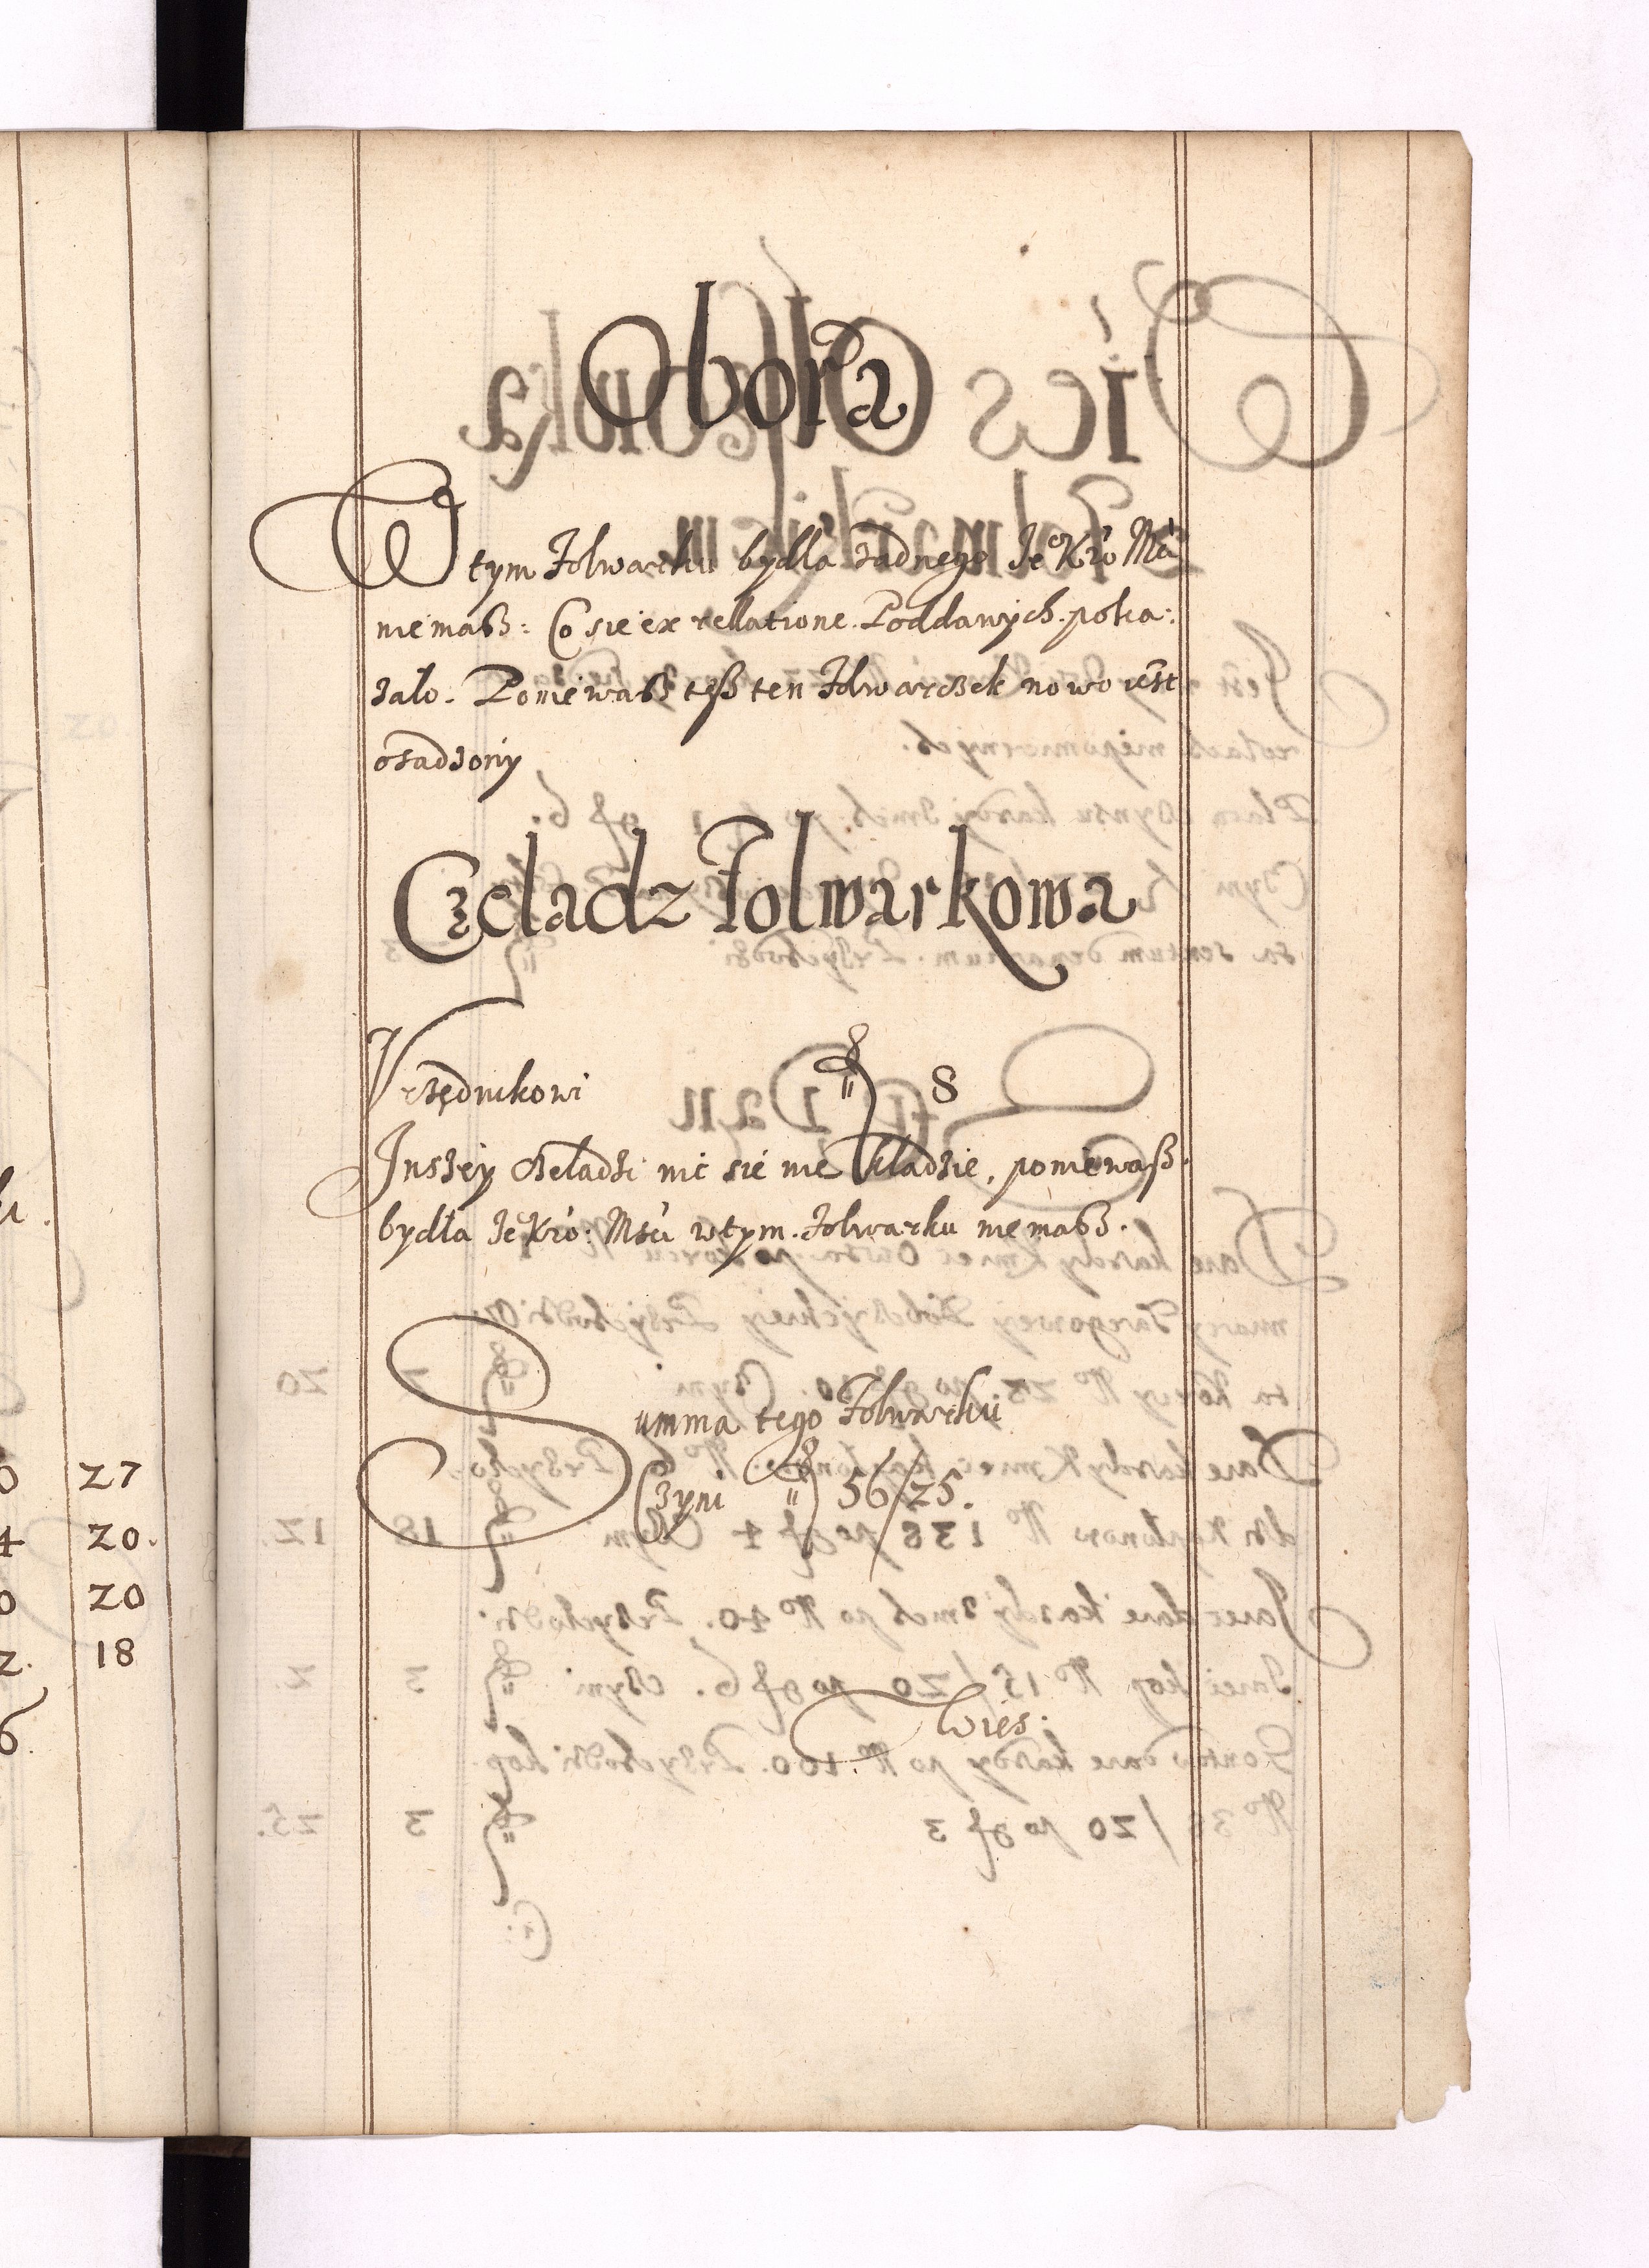 Obora
W tym Folwarku bydła zadnego Je° Kró Mci
nie masz: Co sie ex rellatione Poddanych poka:
zało. Poniewasz tesz ten Folwarczek nowo iest
osadzony
Czeladz Folwarkowa
Vrzędnikowi f 8
Jnszey czeladzi nic sie nie kładzie, poniewasz
bydła Je° Kró: Msci w tym folwarku nie masz.
Summa tego Folwarku
Czyni f 56/25.
Wies.
27
4 20.
20
2. 18
6.